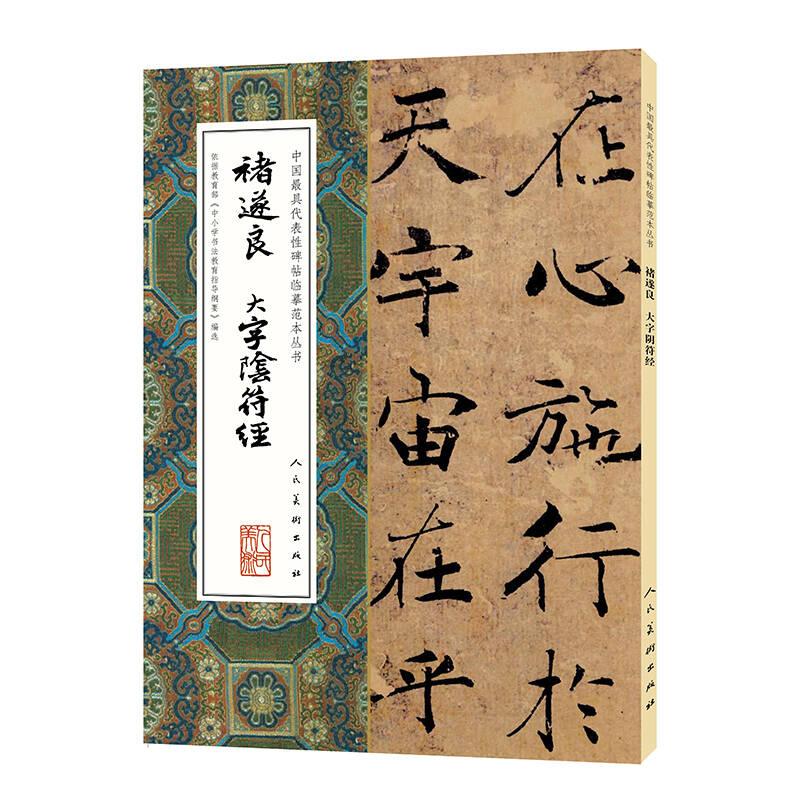 中国最具代表性碑帖临摹范本丛书
褚遂良 大字陰符經
依据教育部《中小学书法教育指导纲要》编选
人民美術出版社
人民美術
在心施行於
天宇宙在乎
中国最具代表性碑帖临摹范本丛书
褚遂良 大字阴符经
人民美術出版社